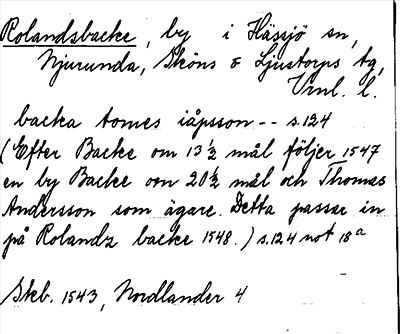 Rolandsbacke, by i Hässjö sn,
Njurunda, Sköns & Ljustorps tg,
Vrnl. l.
backa tomes iåpsson -- s.124
(Efter Backe om 13½ mål följer 1547
en by Backe om 20½ mål och Thomas
Andersson som ägare. Detta passar in
på Rolandz backe 1548.) s.124 not 18a
Skb. 1543, Nordlander 4